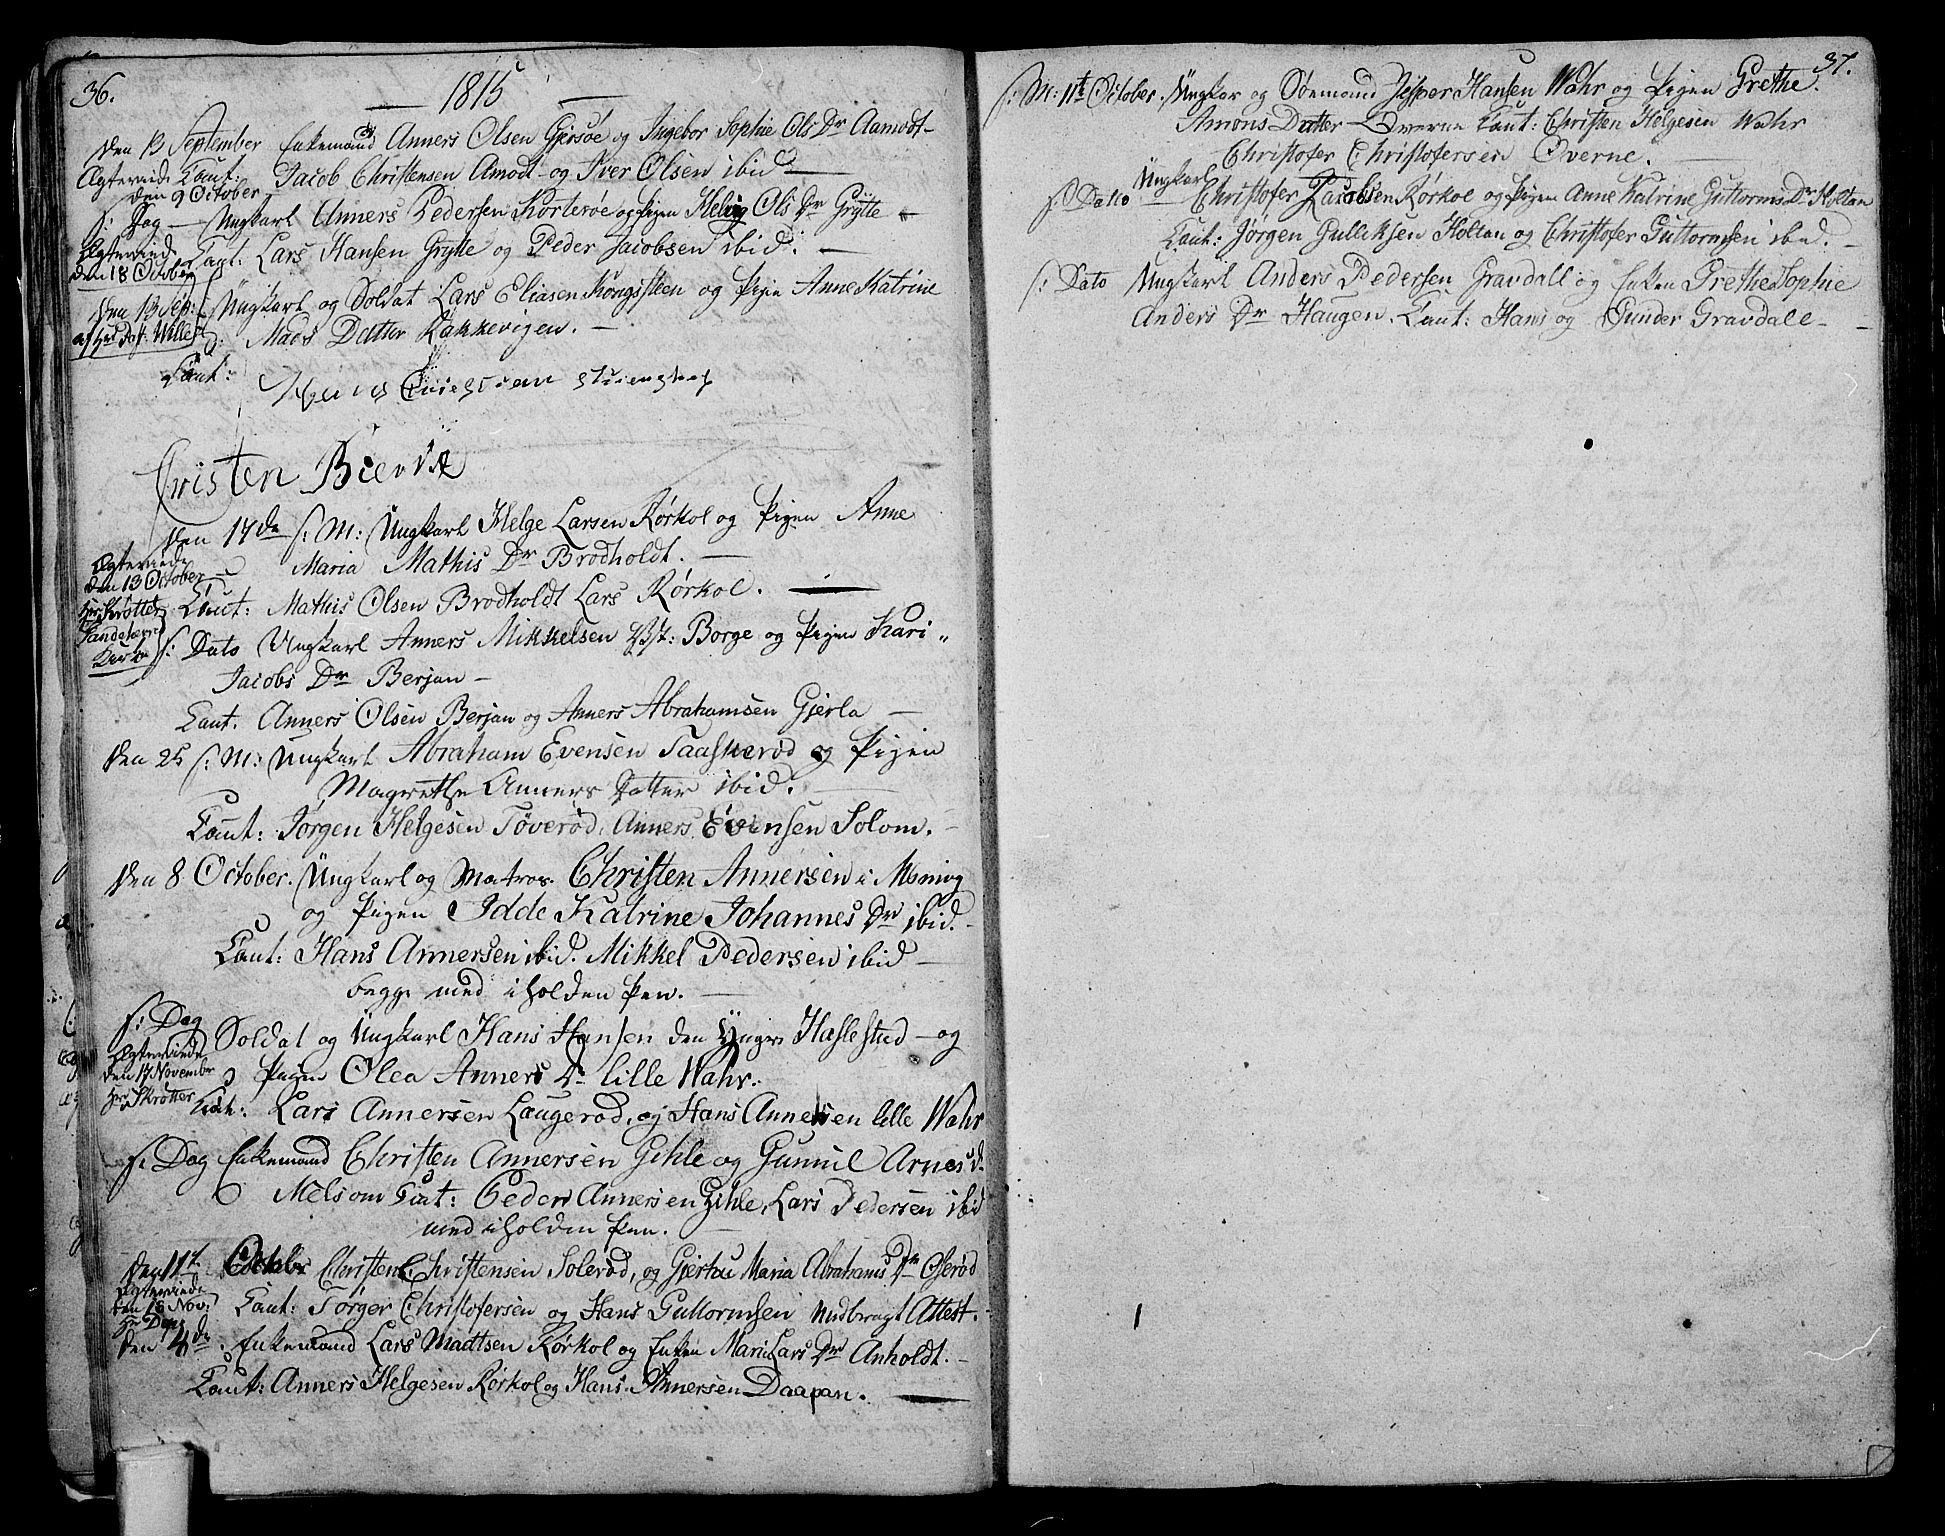 36.
1815
Den 13 September Enkemand Anners Olsen Gjersøe og Ingebor Sophie Ols Dr Aamodt
Caut: Jacob Christensen Amodt og Iver Olsen ibid
Ægteviede
den 9 October
s: Dag Ungkarl Anners Pedersen Korterøe og Pigen Helvig Ols Dr Grytte
Caut: Lars Hansen Grytte og Peder Jacobsen ibid.
Ægteviede
den 18 October
Den 13 Sep: Ungkarl og Soldat Lars Eliasen Kongsteen og Pigen Anne Katrine
Mads Datter Rakkevigen.
af Hr Wille
Caut:
Christen
Den 17de s: M: Ungkarl Helge Larsen Rørkol og Pigen Anne
Maria Mathis Dr Brødholdt.
Ægteviede
den 13 October
Hr Skrotter
Sandeherred
Kirke
Caut: Mathis Olsen Brodholdt Lars Rørkol.
s: Dato Ungkarl Anners Mikkelsen Borge og Pigen Kari
Jacobs Dr Berjan
Caut. Anners Olsen Berjan og Anners Abrahamsen Gjerla
Den 25 s: M: Ungkarl Abraham Evensen Taaskerød og Pigen
Magrethe Anners Datter ibid.
Caut: Jørgen Helgesen Töverød, Anners Evensen Solom.
Den 8 October. Ungkarl og Matros Christen Annersen i
og Pigen Idde Katrine Johannes Dr ibid.
Caut: Hans Annersen ibid. Mikkel Pedersen ibid
begge med iholden Pen.
s: Dag Soldat og Ungkarl Hans Hansen den Yngre Haslestad og
Pigen Olea Anners Dr lille Wahr.
Ægteviede
den 17 Novembr
Hr Skrotter
Caut: Lars Annersen Laugerød, og Hans Annersen lille Wahr
s: Dag Enkemand Christen Annersen Gihle og Gunnil Arnes dr
Melsom Caut: Peder Annersen Gihle, Lars Pedersen ibid
med iholden Pen.
Den 11t Octobr Christen Christensen Solerød, og Gjertru Maria Abrahams Dr Øserød
Ægteviede
den 16 Nov:
Caut: Tørger Christofersen og Hans Guttormsen Medbragt Attest.
Den 4de Enkemand Lars Madtsen Rørkol og Enken Mari Lars Dr Anholdt.
Caut: Anners Helgesen Rørkol og Hans Annersen Daapan.
37.
s: M: 11t October. Ungkar og Søemand Jesper Hansen Wahr og Pigen Grethe
Amons Datter Øverne Caut: Christen Helgesen Wahr
Christofer Christofersen Øverne.
s: Dato Ungkarl Christofer Rørkol og Pigen Anne Katrine Guttorms Dr Holtan
Caut: Jørgen Gulliksen Holtan og Christofer Guttormsen ibid.
s: Dato Ungkarl Anders Pedersen Gravdall og Enken Grethe Sophie
Anders Dr Haugen. Caut: Hans og Gunder Gravdall